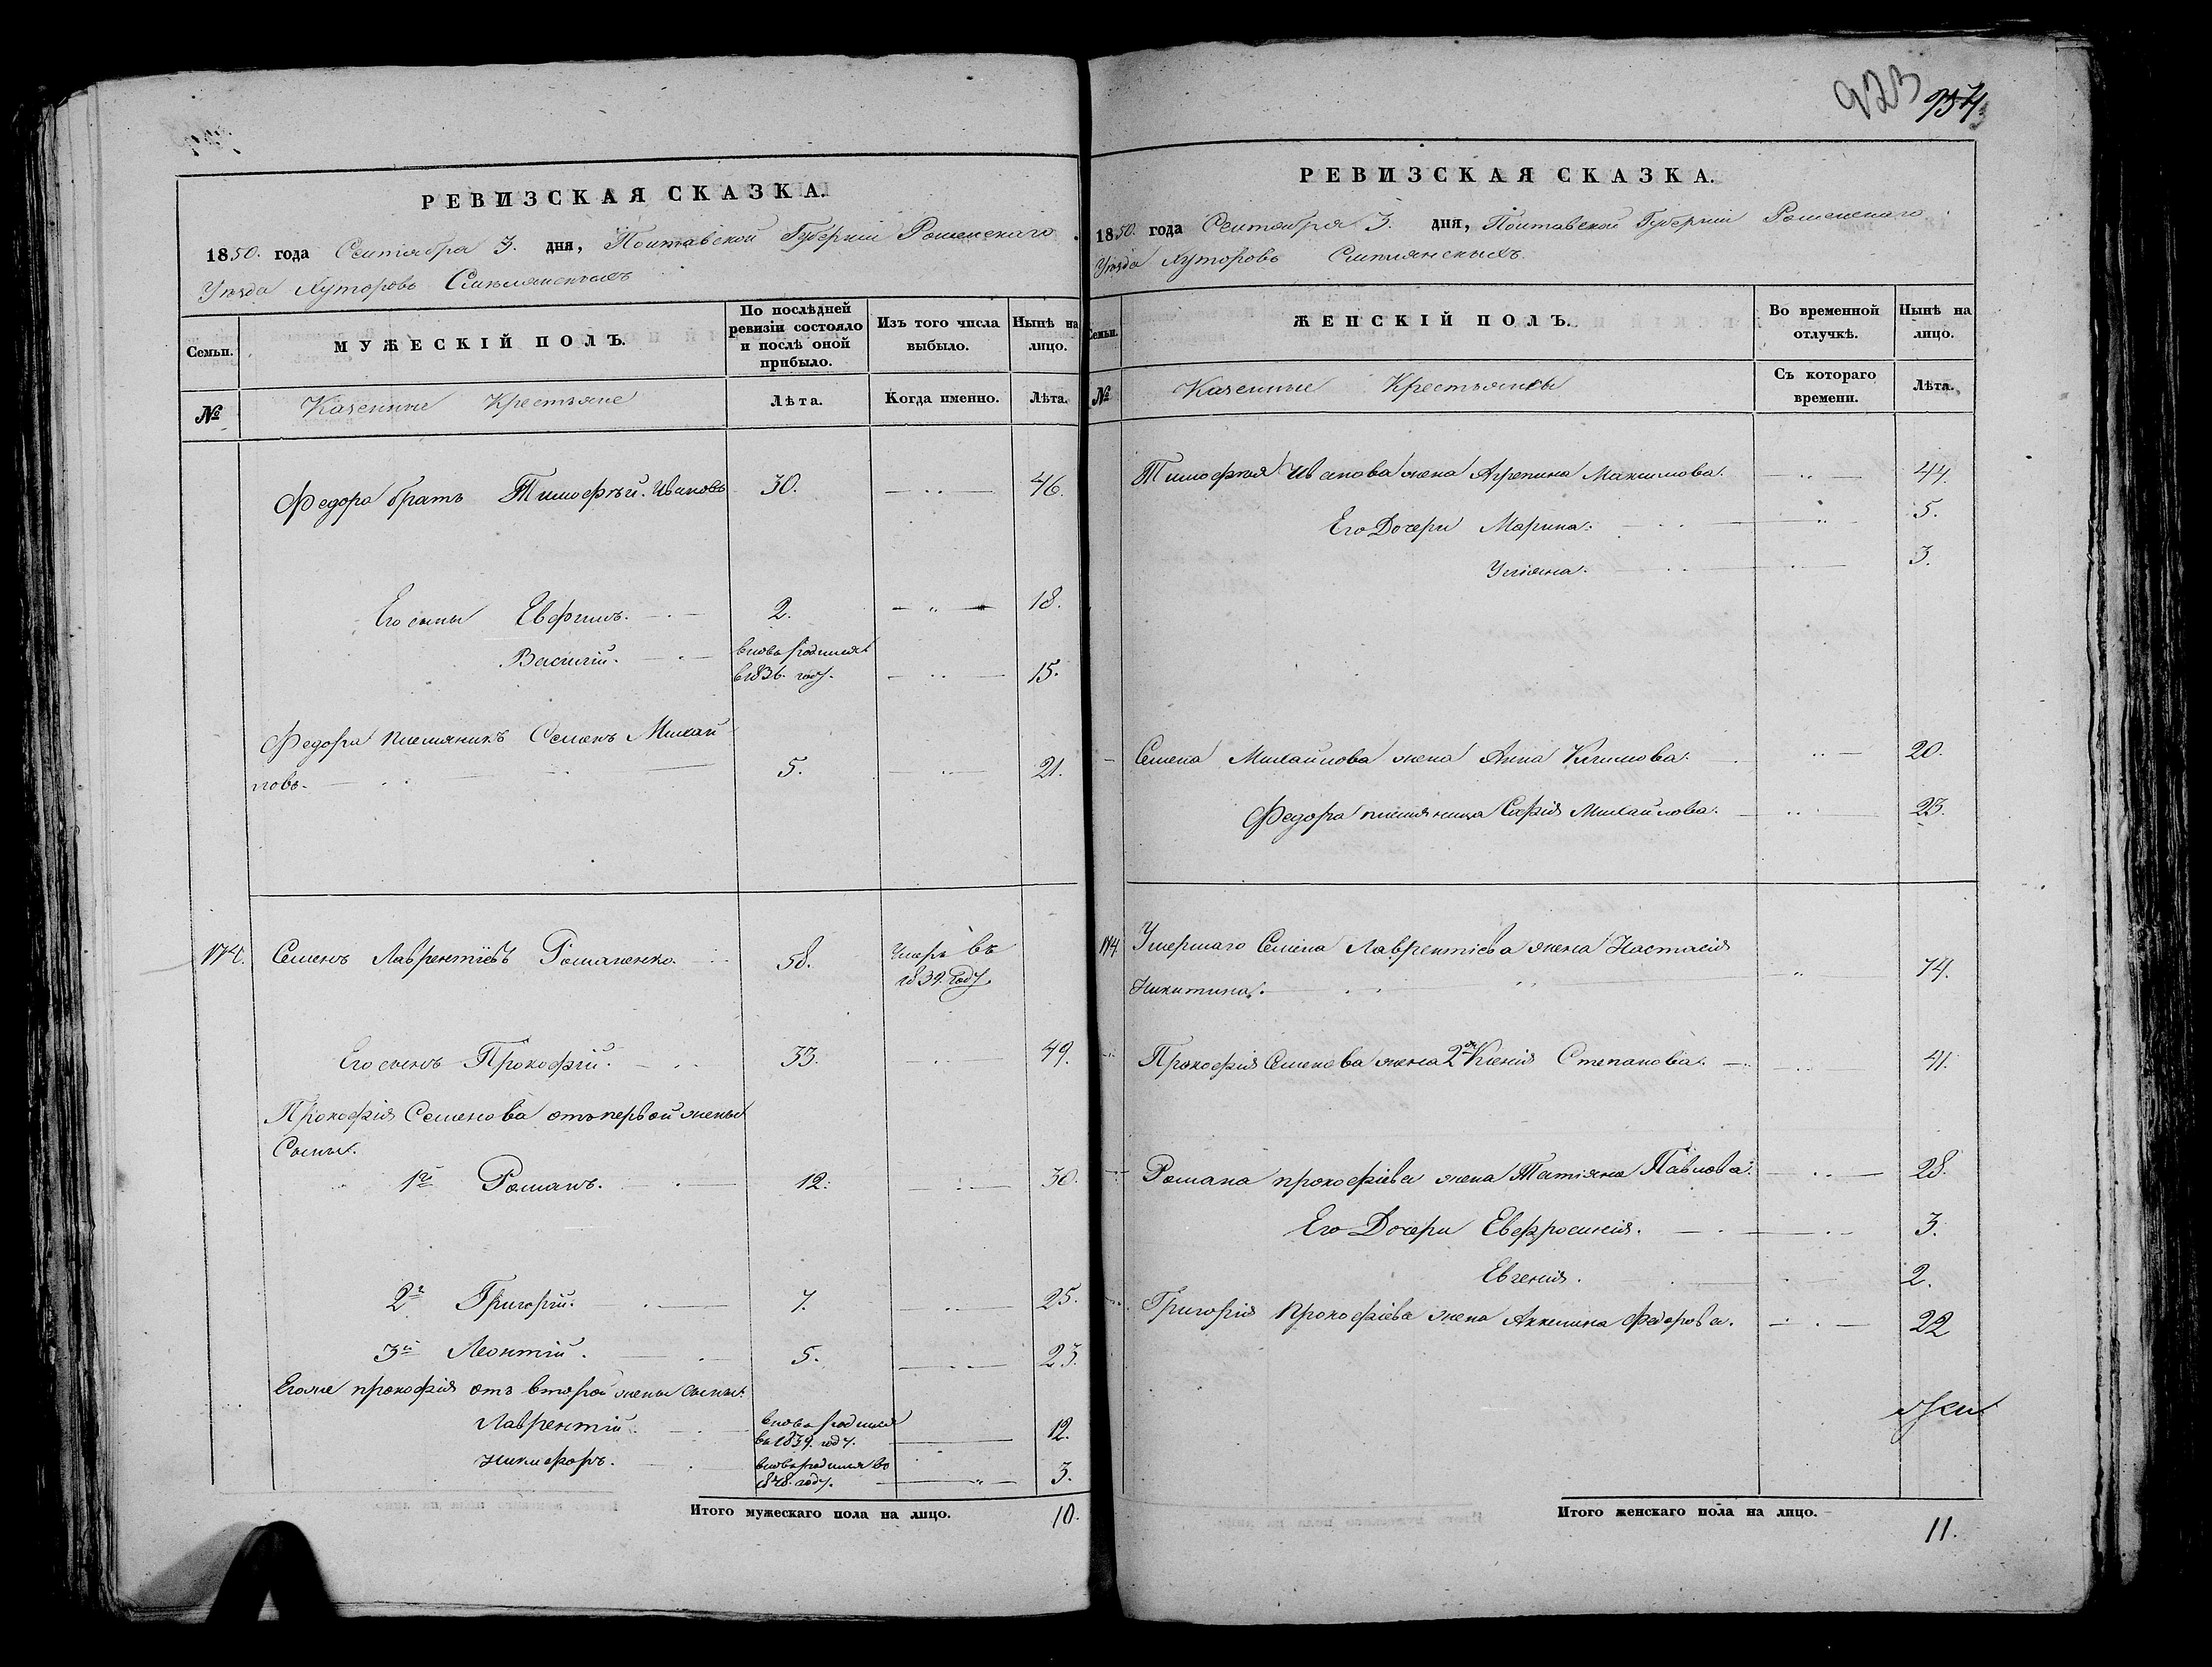 923 934.
РЕВИЗСКАЯ СКАЗКА.
1850. года Сентября 3. дня, Полтавской Губерніи Роменскаго
Уѣзда Хуторовъ Смѣлянскихъ
Семьи.
МУЖЕСКІЙ ПОЛЪ.
По послѣдней
ревизіи состояло
и послѣ оной
прибыло.
Изъ того числа
выбыло.
Нынѣ на
лицо.
№
Казенные Крестьяне
Лѣта.
Когда именно.
Лѣта.
Федора братъ Тимофѣй Ивановъ 30. 46.
Его сыны Евфимъ. 2. 18.
Василій. вновь родился
в 1836 году. 15.
Федора племяникъ Семенъ Михай
ловъ. 5. 21.
174. Семенъ Лаврентіевъ Романенко. 58. Умеръ въ
1839. году.
Его сынъ Прокофій. 33. 49.
Прокофія Семенова отъ первой жены
Сыны.
1й Романъ. 12. 30.
2й Григорій. 7. 25.
3й Леонтій. 5. 23.
Егоже прокофія отъ второй жены сыны.
Лаврентій. вновь родился
въ 1839. году. 12.
Никифоръ. вновь родился во
1848 году. 3.
Итого мужескаго пола на лицо. 10.
РЕВИЗСКАЯ СКАЗКА.
1850. года Сентября 3. дня, Полтавской Губерніи Роменскаго
Уѣзда Хуторовъ Смѣлянскихъ
Семьи.
ЖЕНСКІЙ ПОЛЪ.
Во временной
отлучкѣ.
Нынѣ на
лицо.
№
Казенные Крестьянки
Съ котораго
времени.
Лѣта.
Тимофѣя Иванова жена Агрепина Максимова. 44.
Его Дочери Марина. 5.
Уліяна. 3.
Семена Михайлова жена Анна Климова. 20.
Федора племяница Софія Михайлова. 23.
174 Умершаго Семена Лаврентіева жена Настасія
Никитина. 74.
Прокофія Семенова жена 2я Ксенія Степанова. 41.
Романа прокофіева жена Татіяна Павлова. 28.
Его Дочери Евфросинія. 3.
Евгенія. 2.
Григорія Прокофіева жена Акилина Федорова. 22
Итого женскаго пола на лицо.
11.